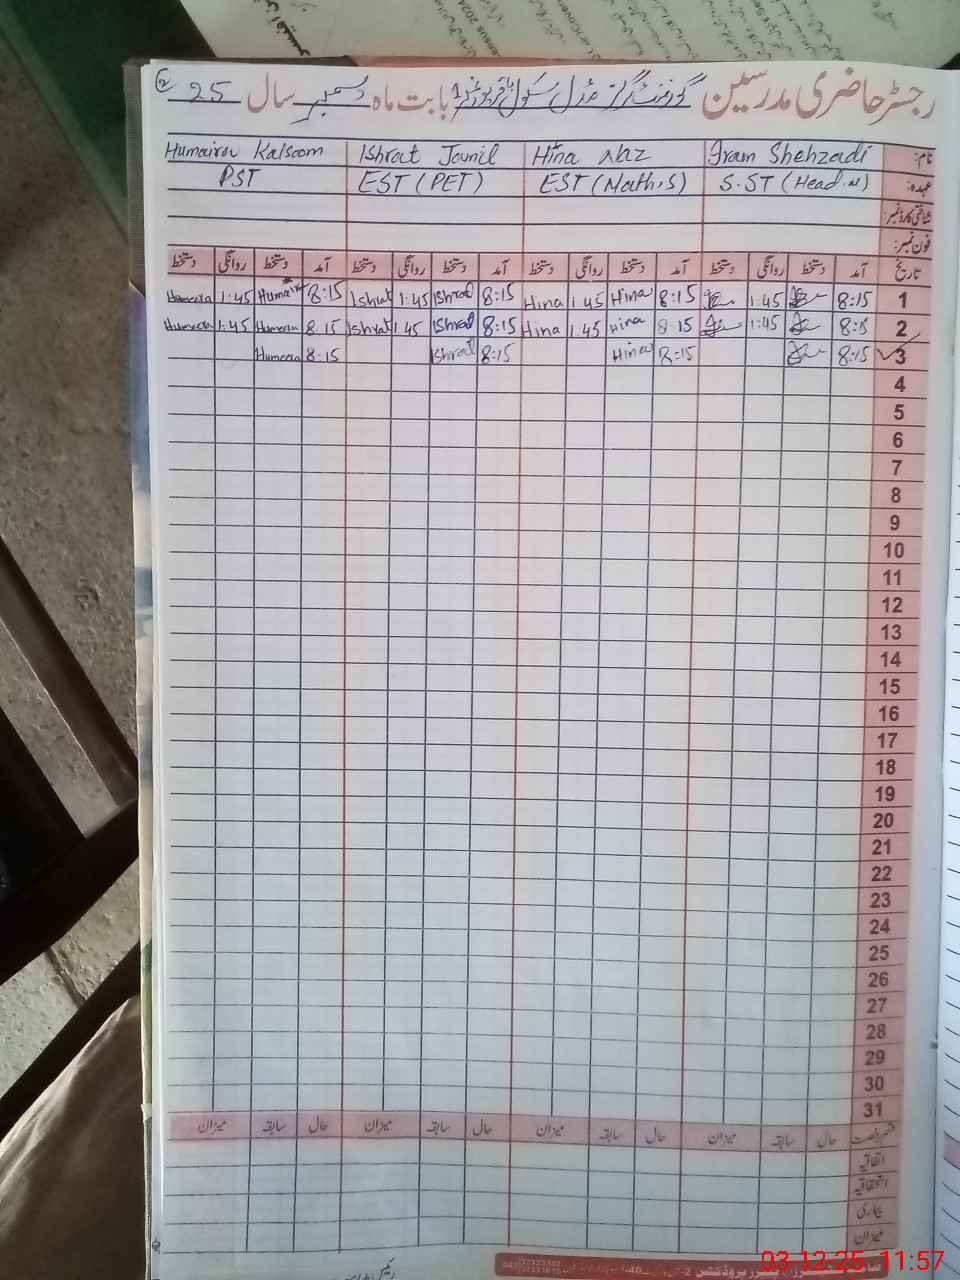 رجسٹر حاضری مدرسین گورنمنٹ گرلز مڈل سکول بابت ماہ دسمبر سال 25
نام: Iram Shehzadi Hina Naz Ishrat Jamil Humaira Kalsoom
عہدہ: S.ST (Head.M) EST (Math,S) EST (PET) PST
شناختی کارڈ نمبر:
فون نمبر:
تاریخ آمد دستخط روانگی دستخط آمد دستخط روانگی دستخط آمد دستخط روانگی دستخط آمد دستخط روانگی دستخط
1 8:15 1:45 8:15 Hina 1:45 Hina 8:15 Ishrat 1:45 Ishrat 8:15 Humaira 1:45 Humera
2 8:15 1:45 8:15 Hina 1:45 Hina 8:15 Ishrat 1:45 Ishrat 8:15 Humera 1:45 Humera
3 8:15 8:15 Hina 8:15 Ishrat 8:15 Humeera
4
5
6
7
8
9
10
11
12
13
14
15
16
17
18
19
20
21
22
23
24
25
26
27
28
29
30
31
قسم رخصت حال سابقہ میزان حال سابقہ میزان حال سابقہ میزان حال سابقہ میزان
اتفاقیہ
استحقاقیہ
بیماری
میزان
03-12-25 11:57